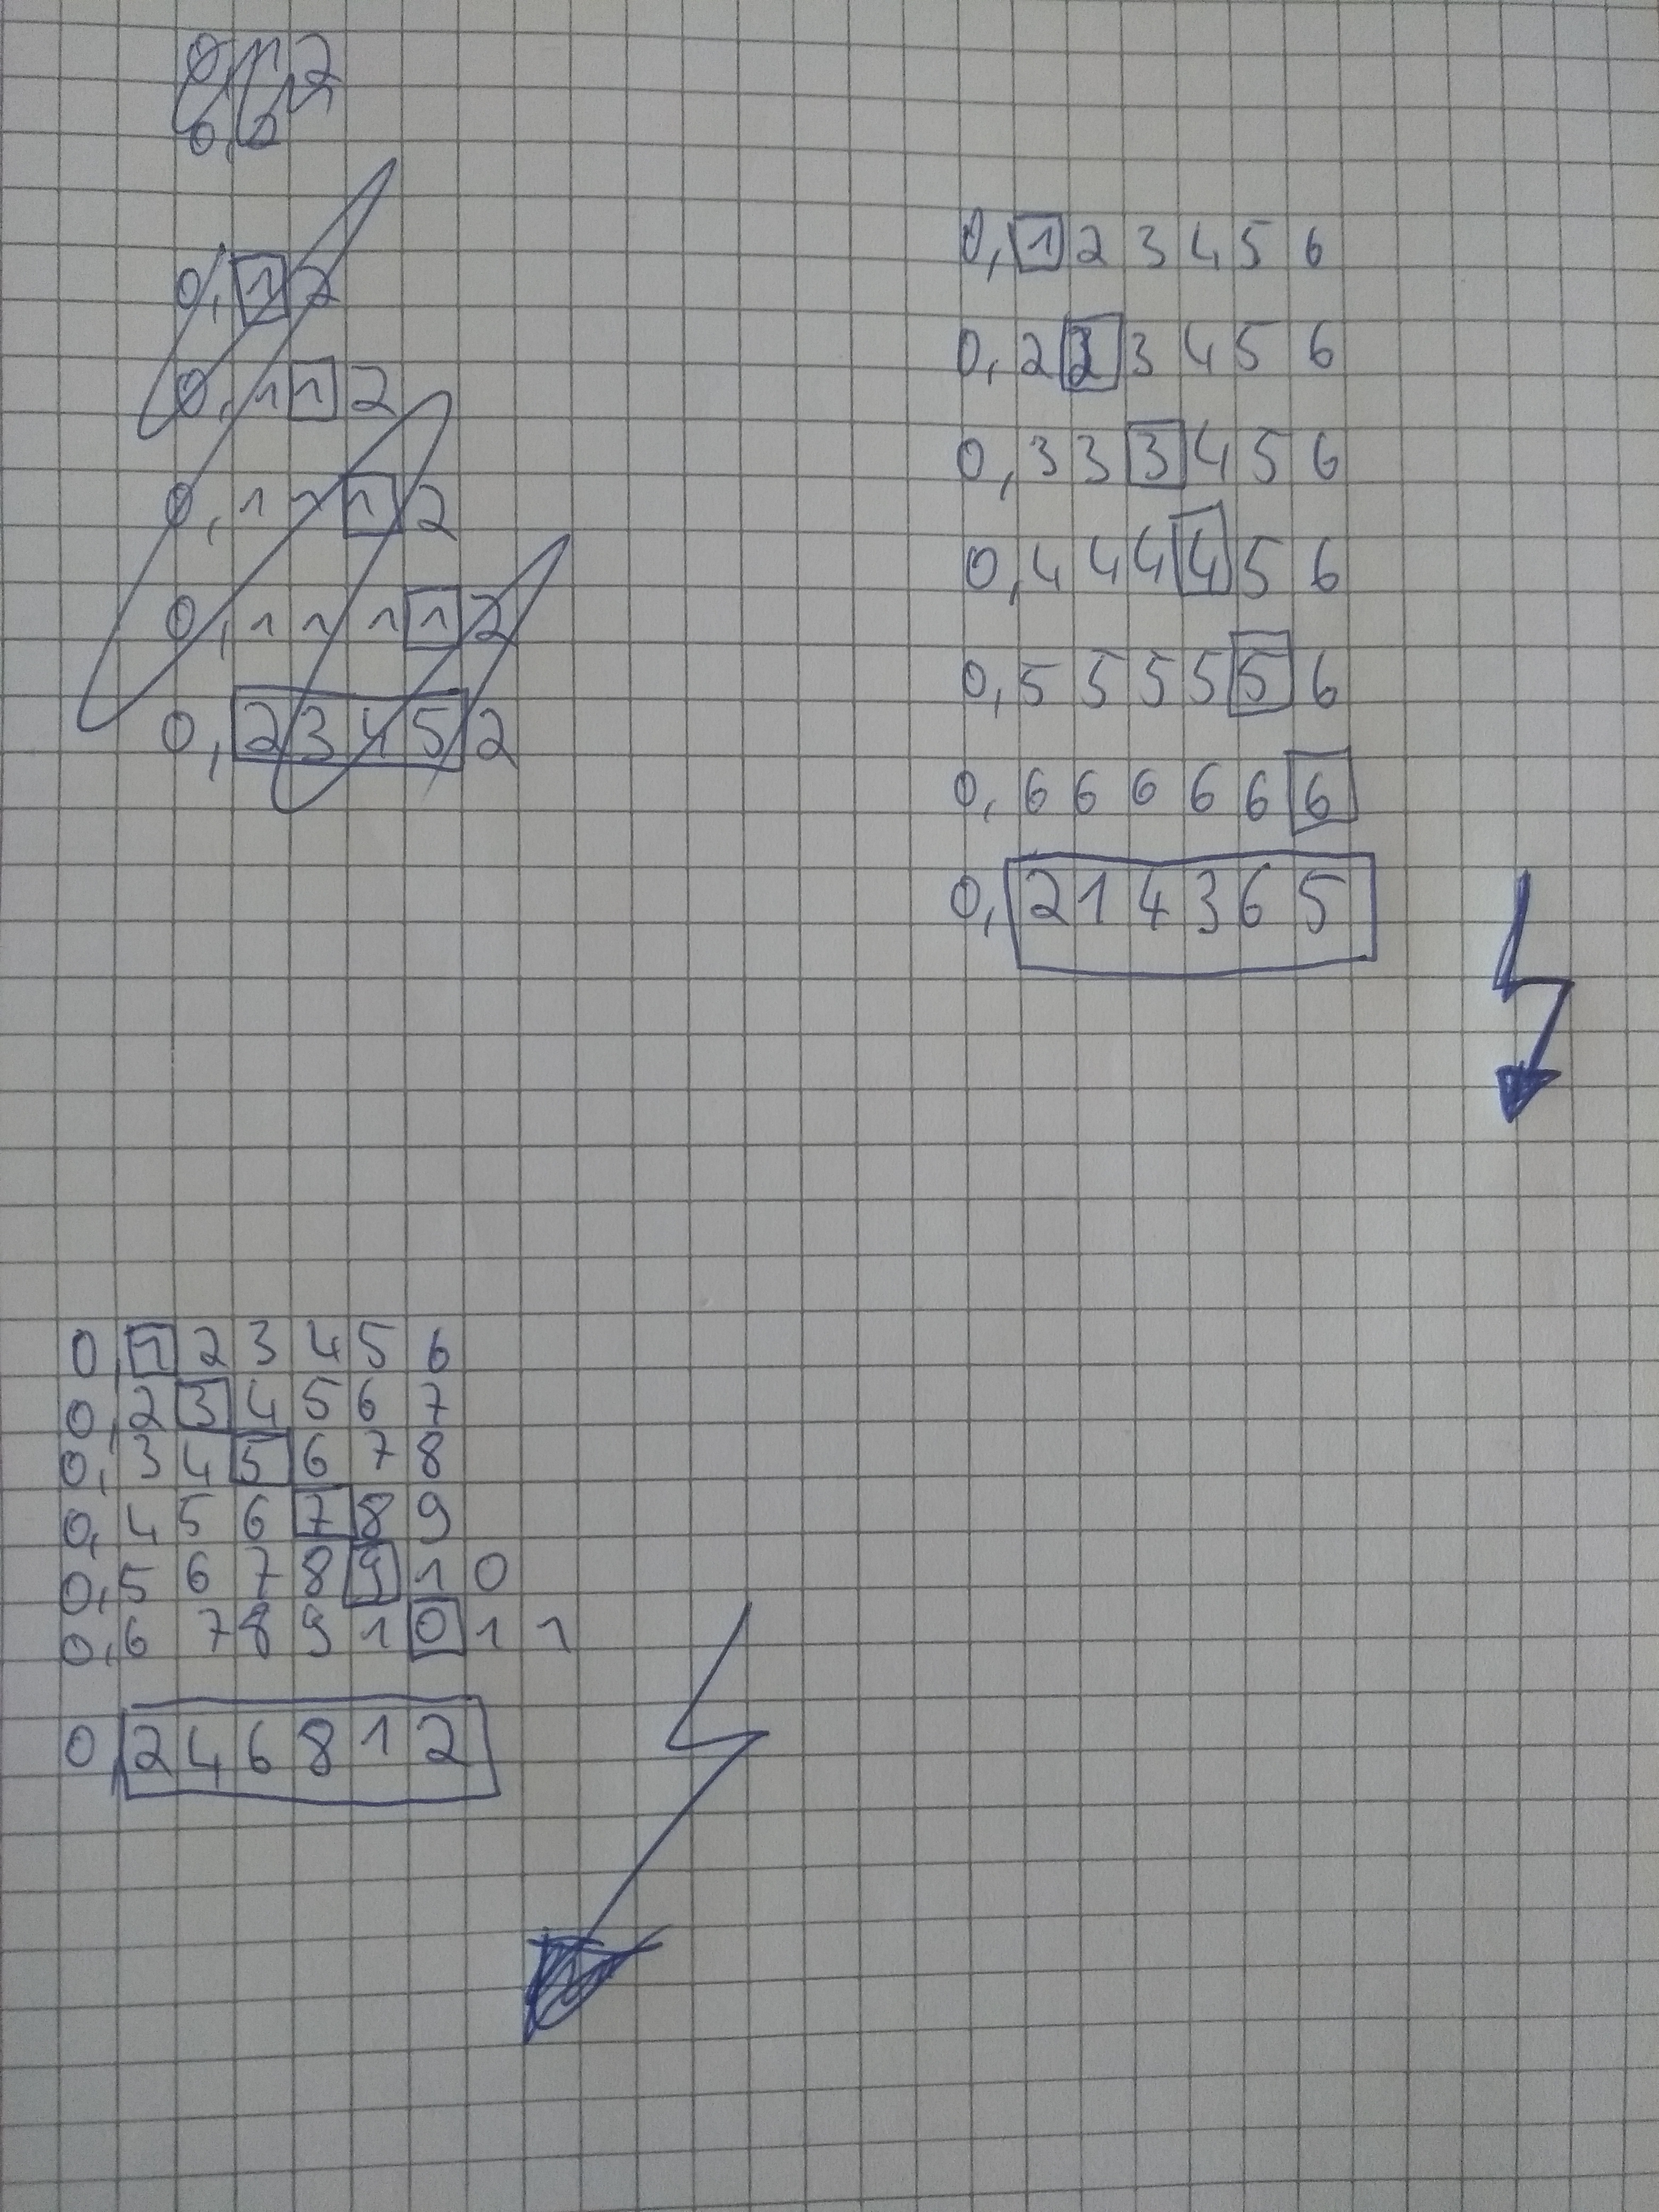 0,12
0,12
0,112
0,1112
0,11112
0,23452
0,123456
0,223456
0,333456
0,444456
0,555556
0,666666
0,214365
0,123456
0,234567
0,345678
0,456789
0,5678910
0,67891011
0,246812